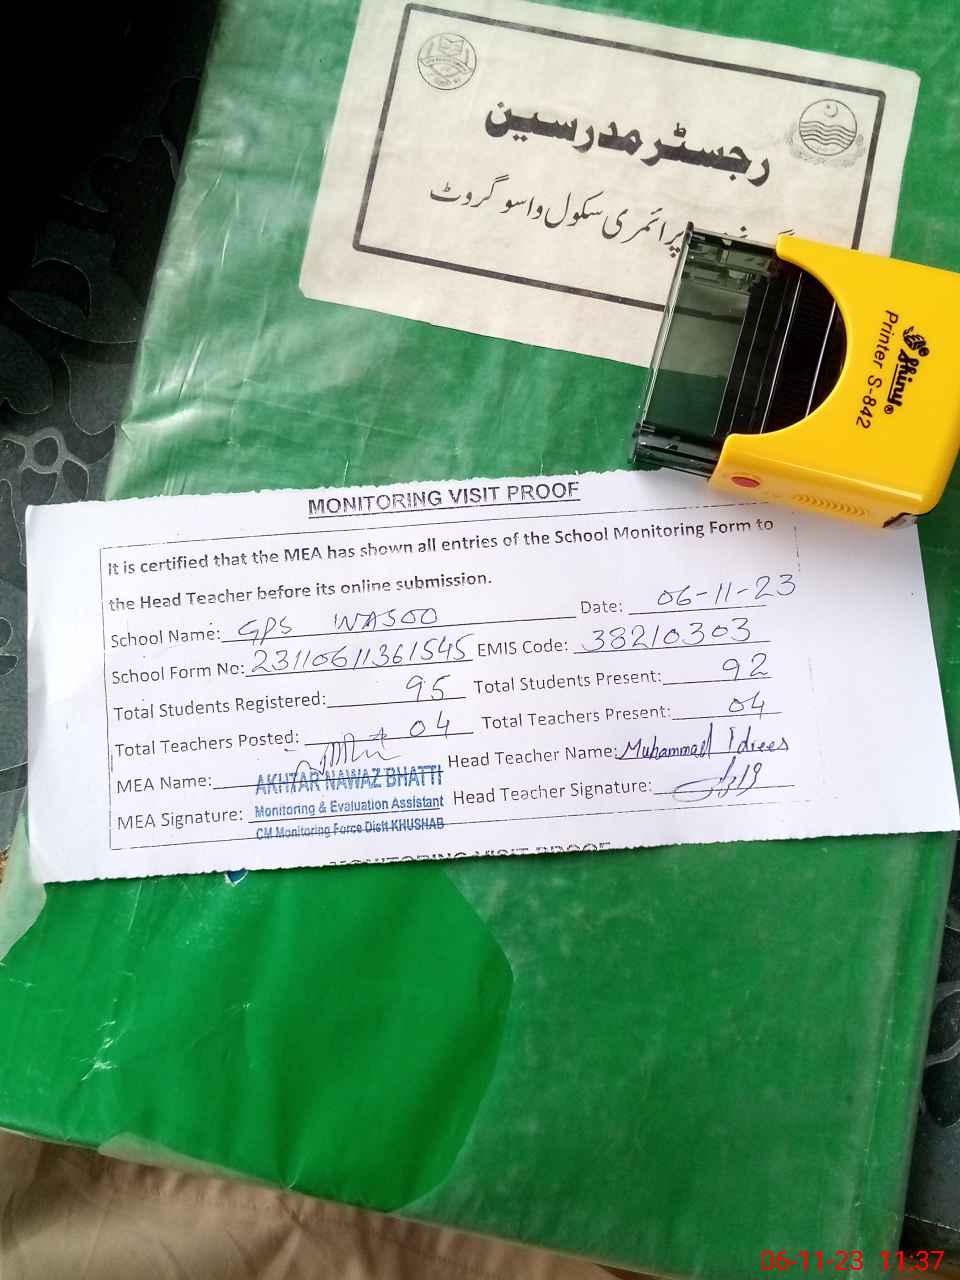 رجسٹر مدرسین
پرائمری سکول واسو گروٹ
Shiny®
Printer S-842
MONITORING VISIT PROOF
It is certified that the MEA has shown all entries of the School Monitoring Form to
the Head Teacher before its online submission.
School Name: GPS WASOO Date: 06-11-23
School Form No: 23110611361545 EMIS Code: 38210303
Total Students Registered: 95 Total Students Present: 92
Total Teachers Posted: 04 Total Teachers Present: 04
MEA Name: AKHTAR NAWAZ BHATTI Head Teacher Name: Muhammad Idrees
MEA Signature: Monitoring & Evaluation Assistant Head Teacher Signature:
CM Monitoring Force Distt KHUSHAB
MONITORING VISIT PROOF
06-11-23 11:37